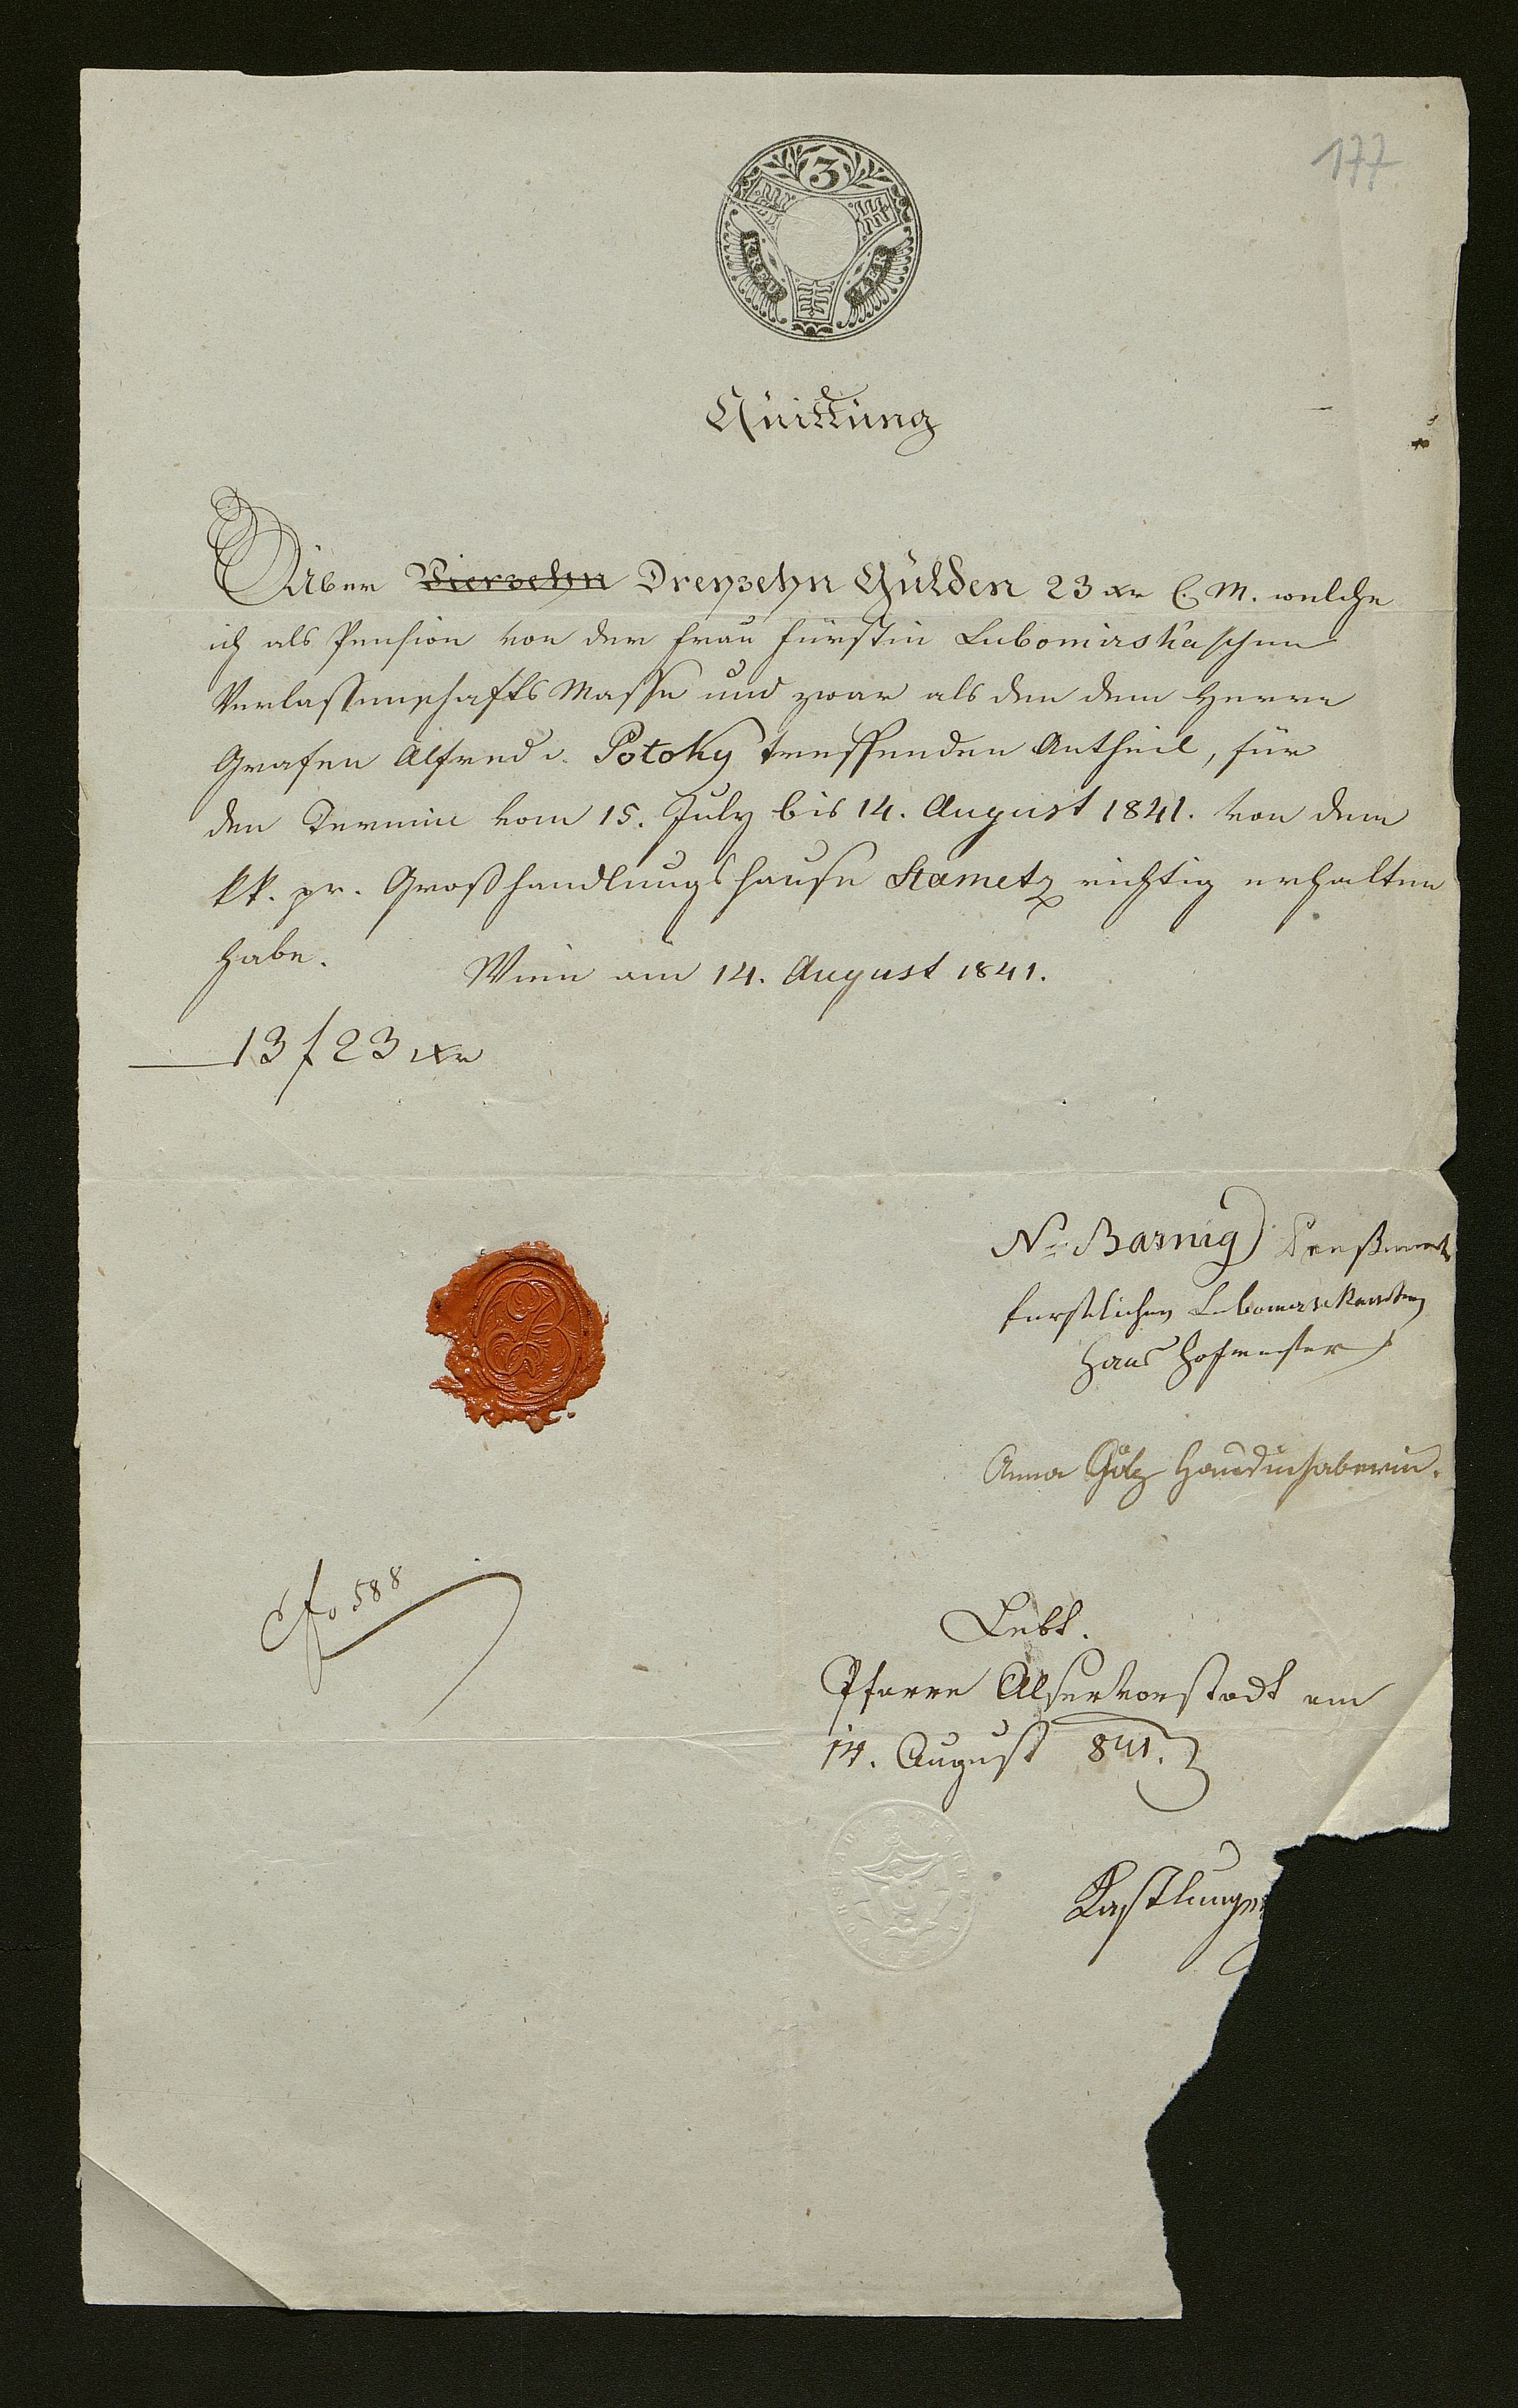 177
3
KREU ZER
Quittung
Über Vierzehn Dreyzehn Gulden 23 xr C. M. welche
ich als Pension von der Frau Fürstin Lubomirska'schen
Verlassenschafts Masse und zwar als den dem Herrn
Grafen Alfred v. Potoky treffenden Antheil, für
den Termine vom 15. July bis 14. August 1841. von dem
kk. pr. Großhandlungshause Stametz richtig erhalten
habe.
Wien am 14. August 1841.
13 f 23 xr
N. Barnig
fürstlichen
Haus Hofmeister
Anna Götz Hausinhaberin.
fo 588
Lebt.
Pfarre Alservorstadt am
14. August 841.